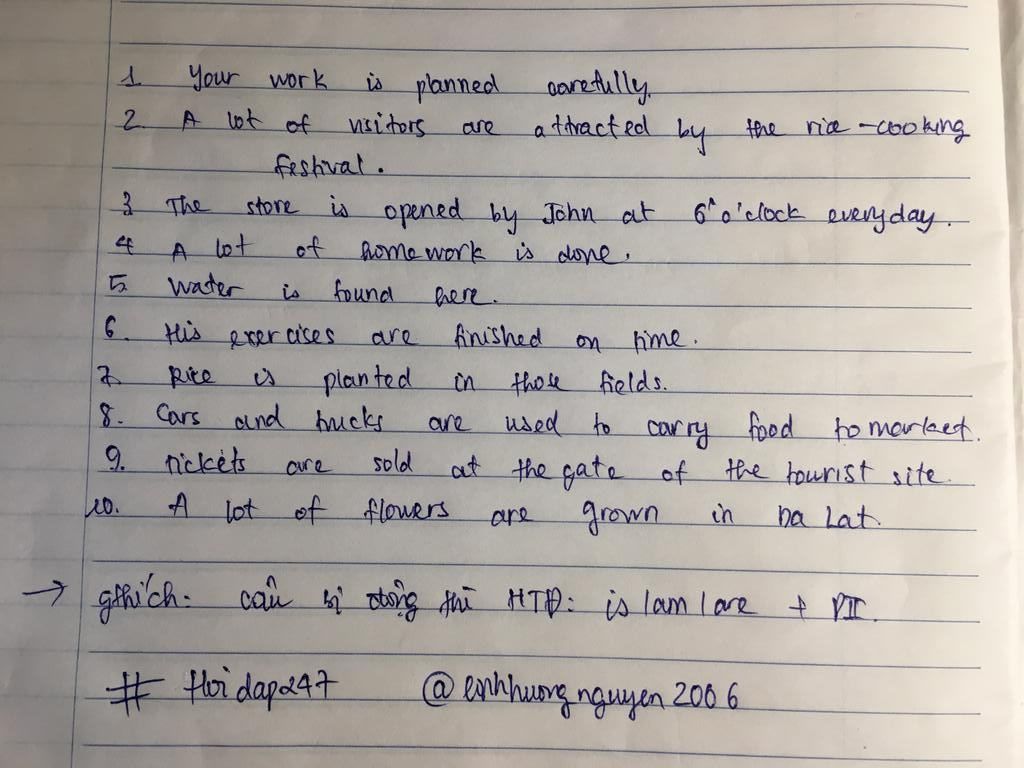 1 Your work is planned carefully.
2. A lot of visitors are attracted by the rice-cooking
festival.
3 The store is opened by John at 6 o'clock everyday.
4 A lot of homework is done.
5. Water is found here.
6. His exercises are finished on time.
7. Rice is planted in those fields.
8. Cars and trucks are used to carry food to market.
9. Tickets are sold at the gate of the tourist site.
10. A lot of flowers are grown in Da Lat.
→ gthích: câu bị động thì HTĐ: is/am/are + PII.
# Hoidap247 @linhhuongnguyen2006